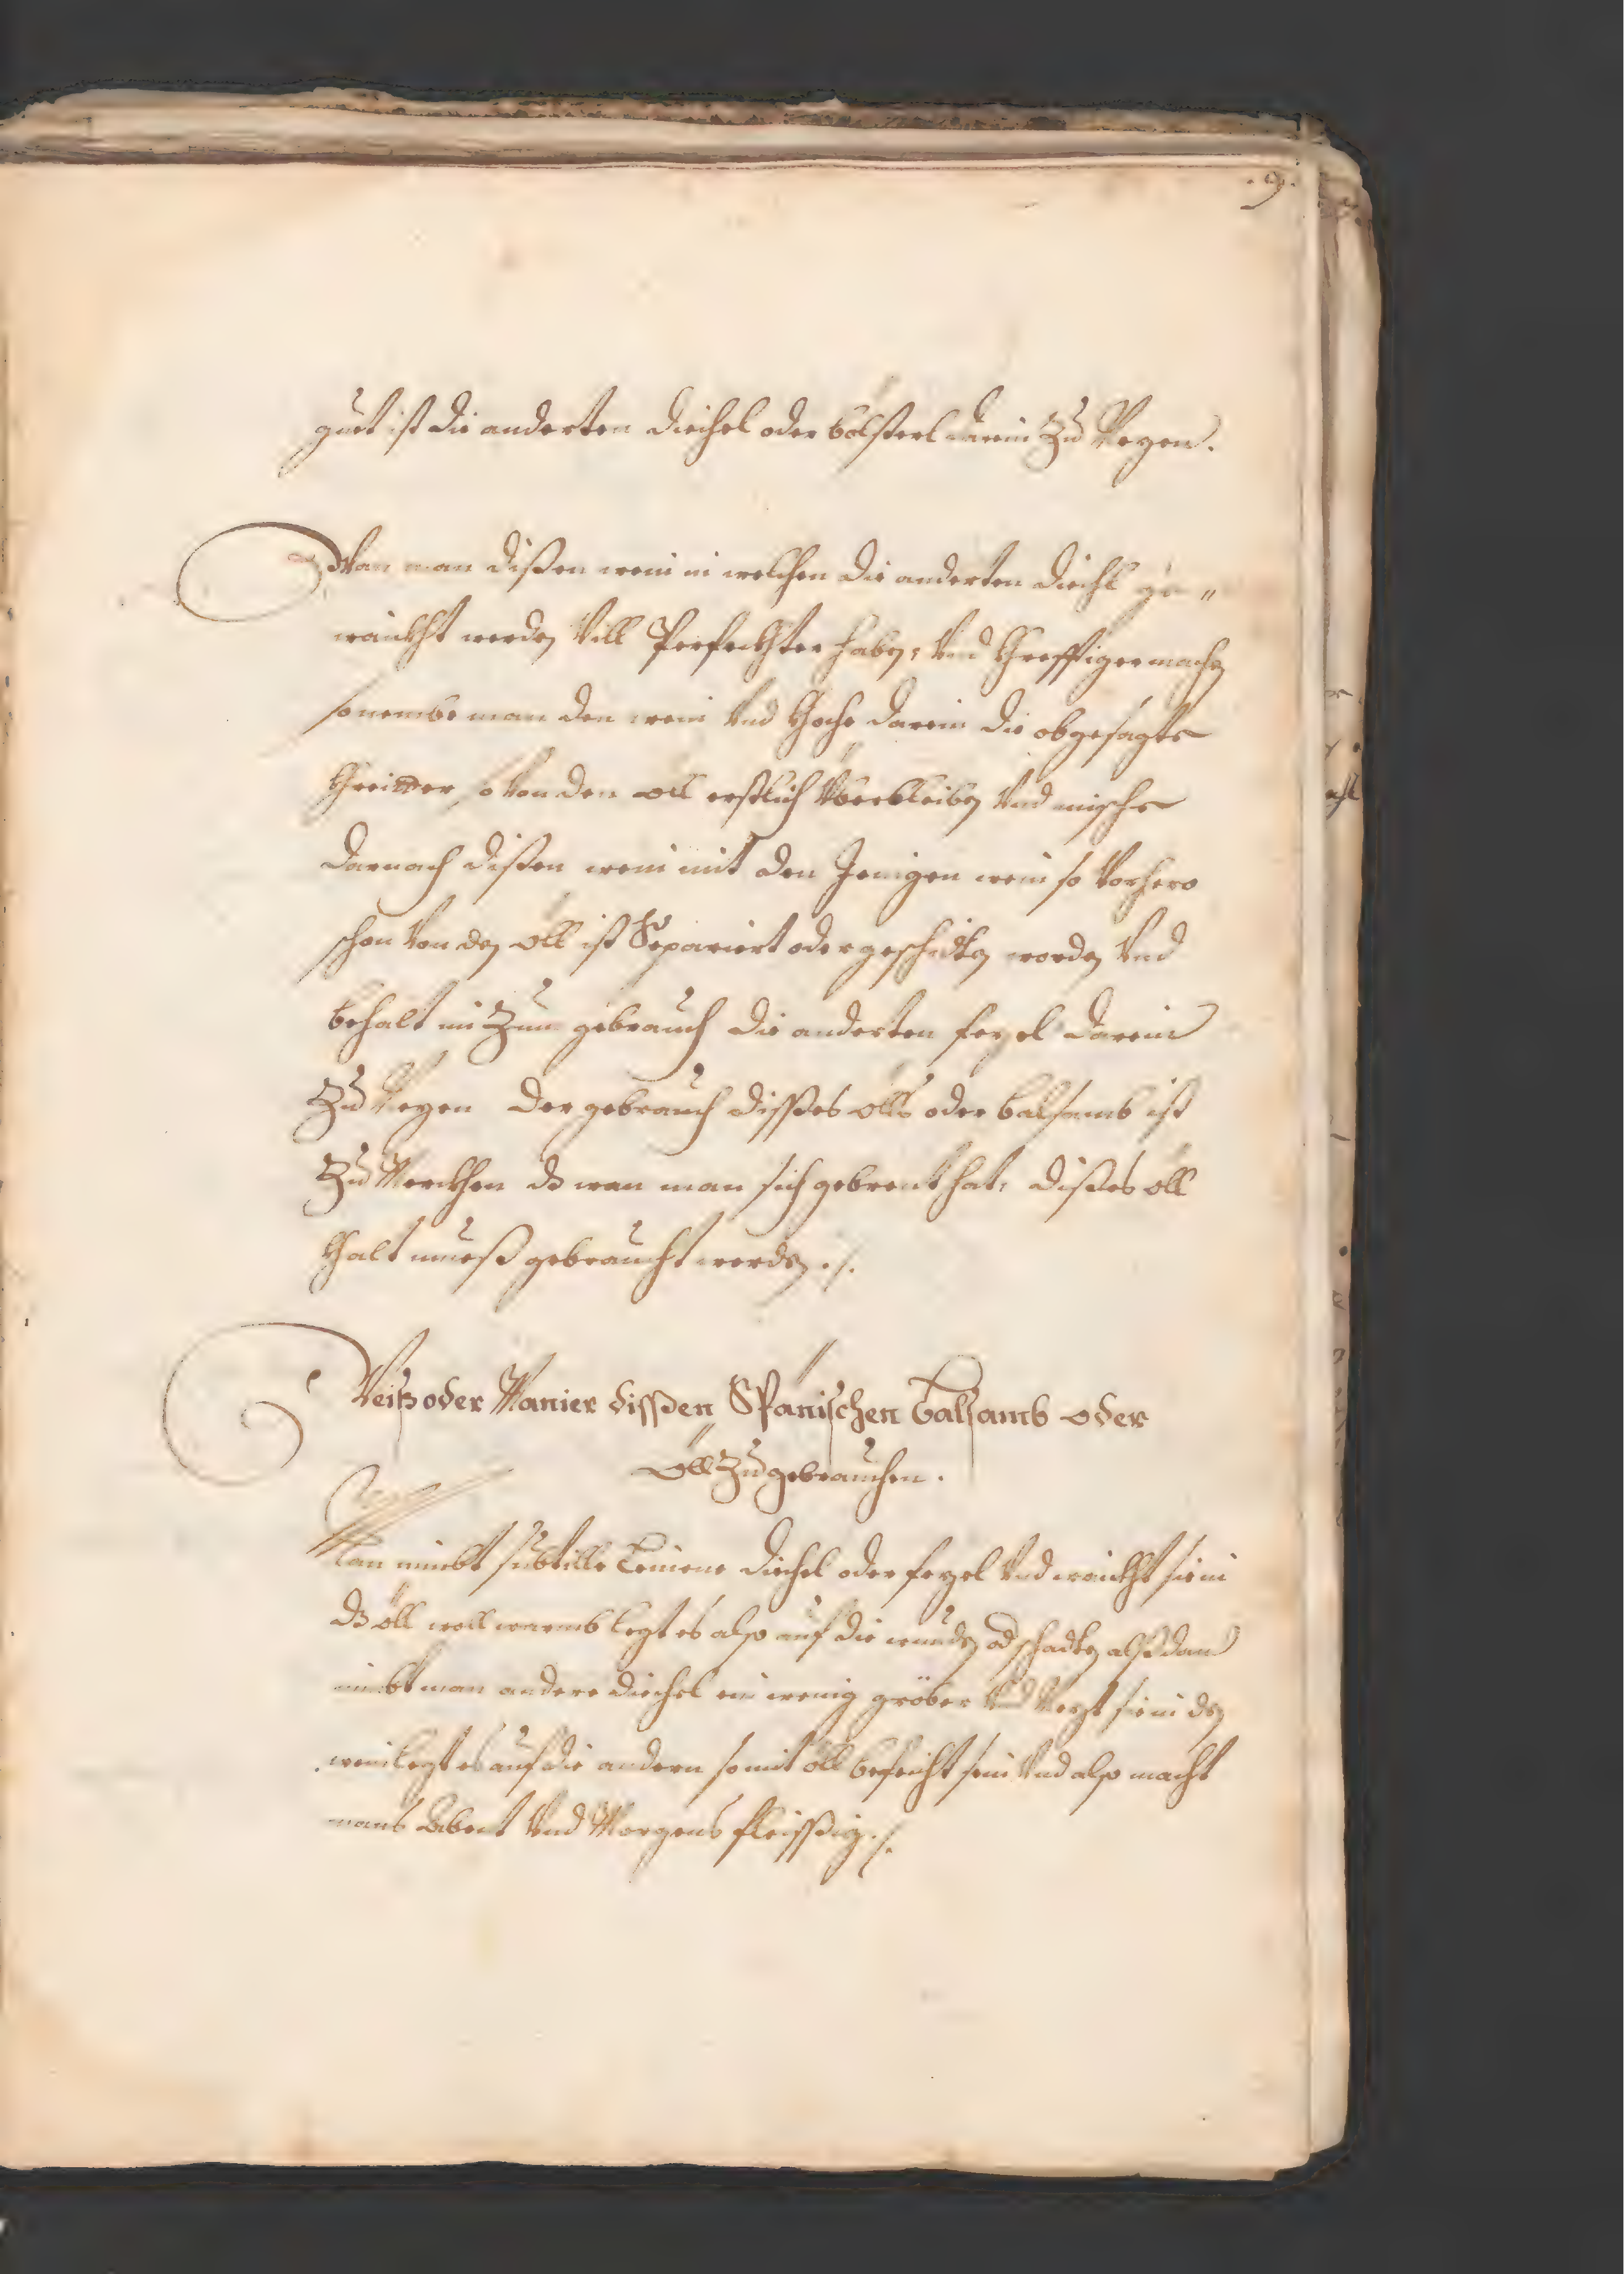 .9.
guet ist die anderten diechel oder bölsterl darein Zu Nezen.
Wan man dißen wein in welchen die anderten diechl ge„
waickht werden Vill Perfeckhter haben, Vnd Khrefftiger machen
so nembe man den wein Vnd Khoche darein die obgesagte
Khreitter, so Von den öll erstlich Vberbleiben Vnd mische
darnach dißen wein mit den Jenigen wein so Vorhero
schon Von den öll ist Separiert oder geschidten worden Vnd
behalt in Zum gebrauch die anderten fezel darein
Zu Nezen der gebrauch dißes ölls oder balsamb ist
Zu Merckhen dz wan man sich gebrent hat, dißes öll
Khalt mueß gebraucht werden ./.
Weiß oder Manier dißen Spanischen balsamb oder
öll Zu gebrauchen.
Man nimbt subtille Leinene diechel oder fezel Vnd waickht sie in
dz öll woll warmb legt es also auf die wunden od schadten alßdan
nimbt man andere diechel ein wenig gröber Vnd Nezt sie in den
wein legt es auf die andern so mit öll befeicht sein Vnd also macht
mans Abent Vnd Morgens fleissig ./.